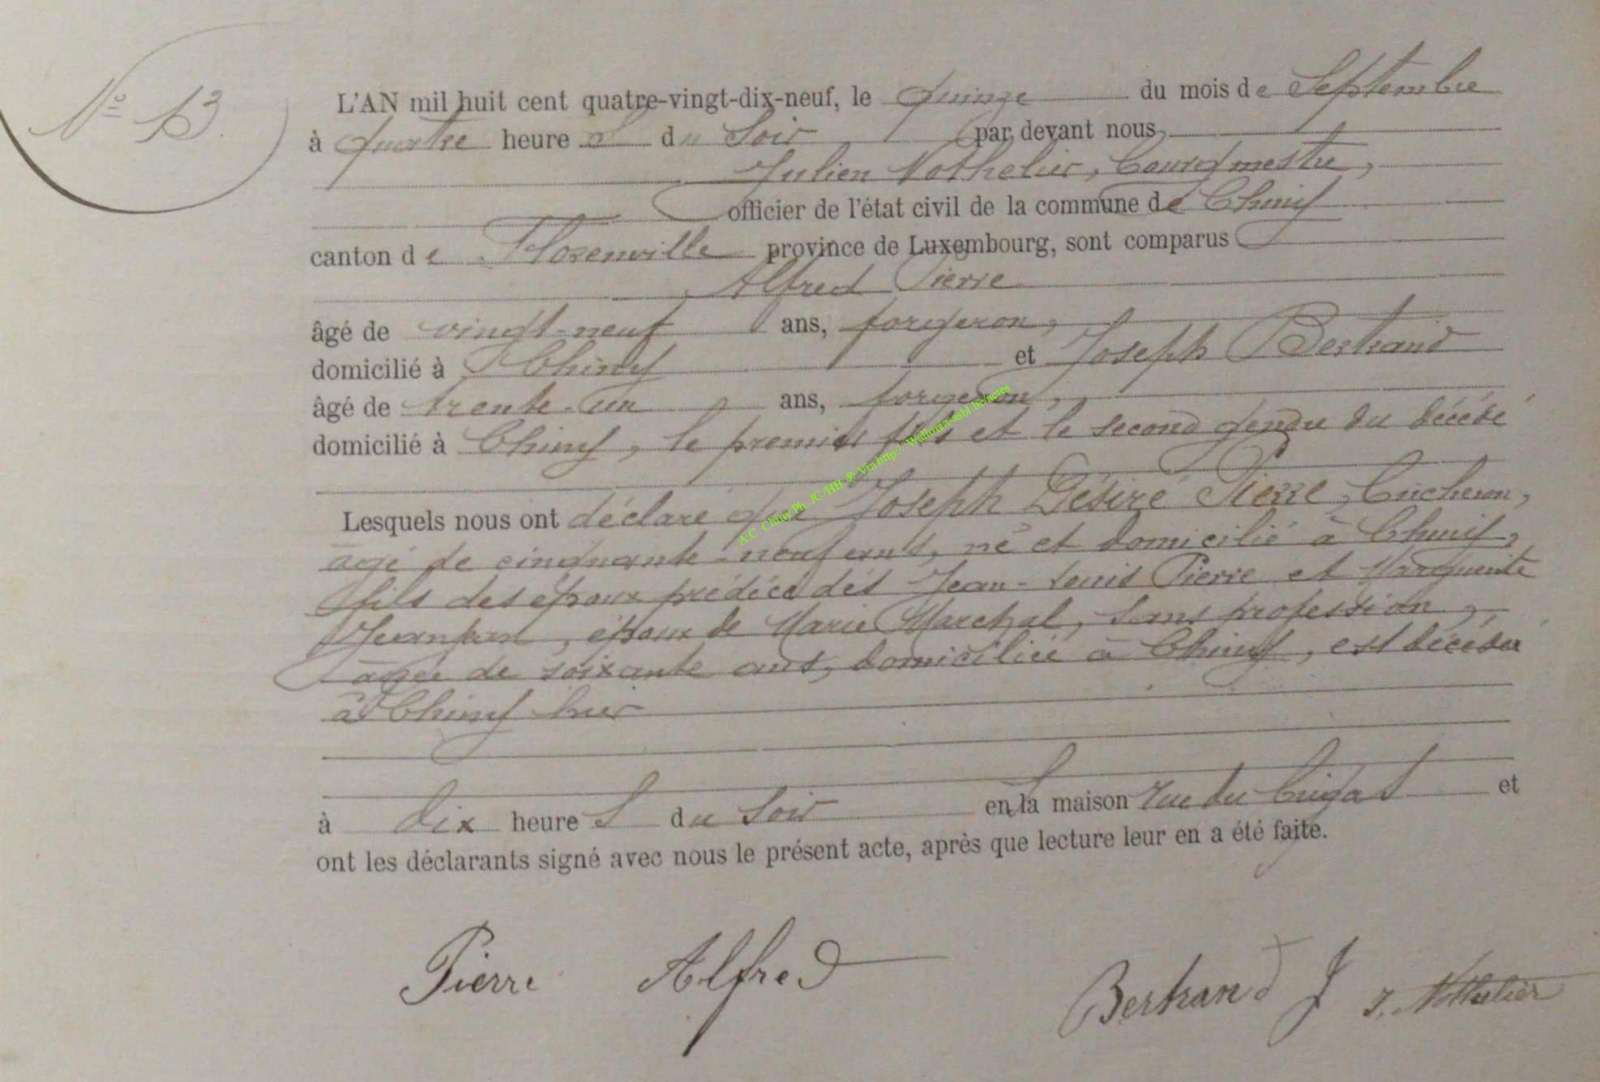 N° 13.
L'AN mil huit cent quatre-vingt-dix-neuf, le quinze du mois de Septembre
à quatre heure s du Soir par devant nous,
Julien Nothelier, bourgmestre,
officier de l'état civil de la commune de Chiny
canton de Florenville province de Luxembourg, sont comparus
Alfred Pierre
âgé de vingt-neuf ans, forgeron,
domicilié à Chiny et Joseph Bertrand
âgé de trente-un ans, forgeron,
domicilié à Chiny, le premier fils et le second gendre du décédé
Lesquels nous ont déclaré que Joseph Désiré Pierre,
âgé de cinquante-neuf ans, né et domicilié à Chiny,
fils des époux prédécédés Jean-Louis Pierre et Marguerite
époux de Marie Marchal, sans profession,
âgée de soixante ans, domiciliée à Chiny, est décédé
à Chiny hier
à dix heure s du Soir en la maison rue du et
ont les déclarants signé avec nous le présent acte, après que lecture leur en a été faite.
Pierre Alfred
Bertrand J J. Nothelier